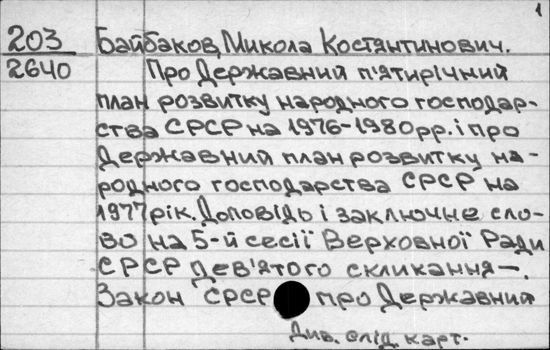 1
203 Байбаков, Микола Костянтинович.
2640 Про Державний п'ятирічний
план розвитку народного господар-
ства СРСР на 1976-1980рр. і про
Державний план розвитку на-
родного господарства СРСР на
1977 рік. Доповідь і заключне сло-
во на 5-й сесії Верховної Ради
СРСР дев'ятого скликання—.
Закон СРСР про Державний
Див. слід. карт.